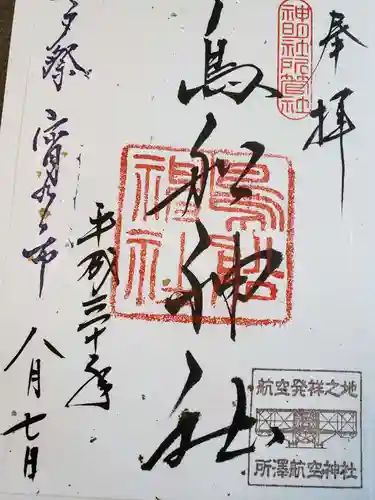 奉拝
神明社所管社
鳥船神社
鳥船
神社
航空発祥之地
所澤航空神社
平成三十年
八月七日
夕祭